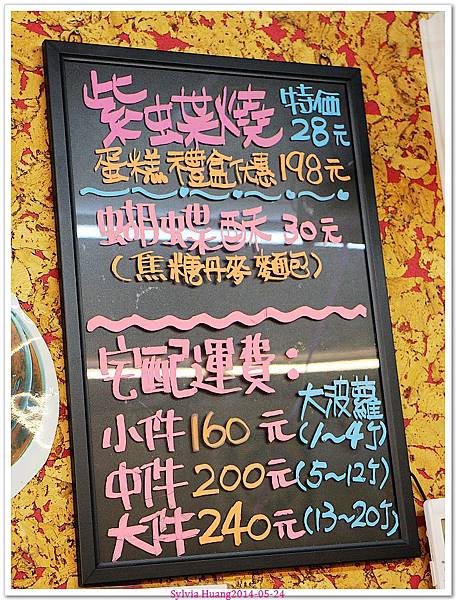 紫蝶燒 特価 28元
蛋糕禮盒優惠198元
蝴蝶酥 30元
(焦糖丹麥麵包)
宅配運費:
大波蘿
小件160元(1~4)
中件200元(5~12)
大件240元(13~20)
Sylvia Huang2014-05-24